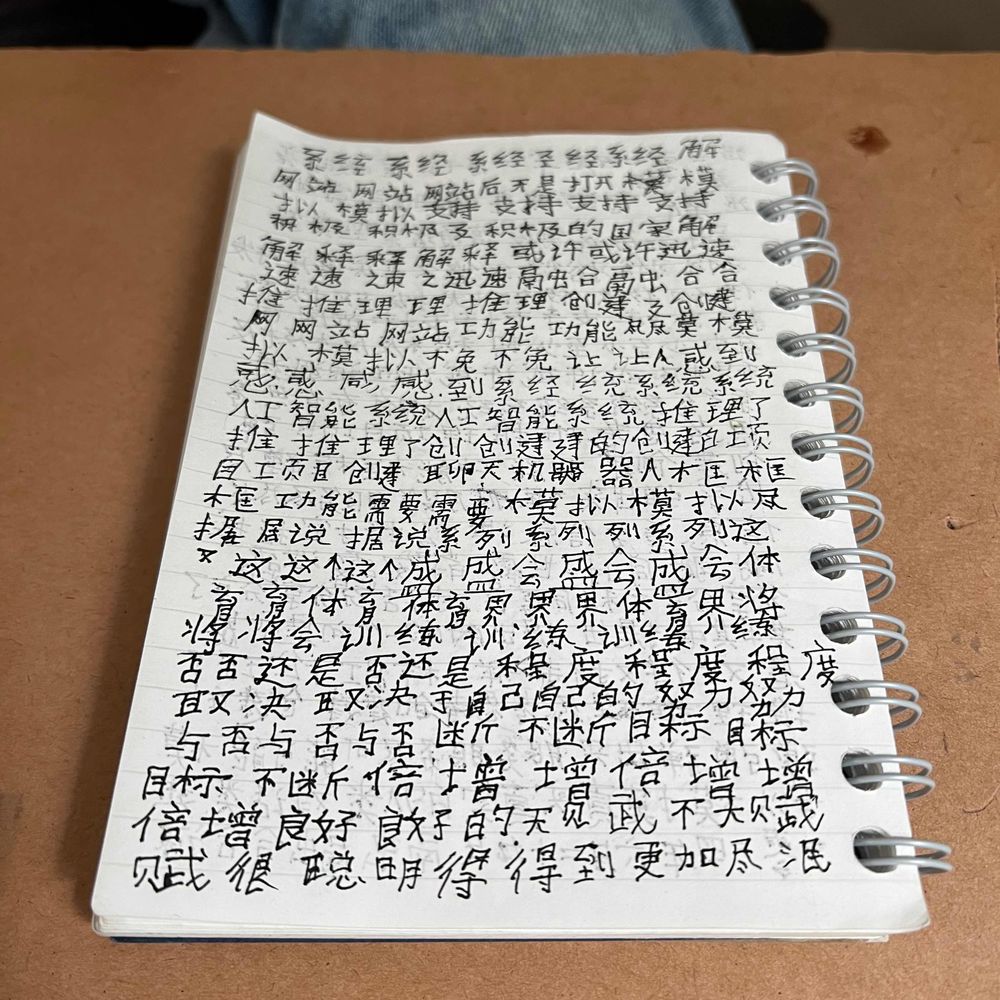 系经 系经 系经圣经系经 解
网站 网站 网站后无是 打开 模 模
拟 模拟 支持 支持 支持 支持
积极 积极及积极的国家解
解释释解释或许或许迅速
速速速之迅速融合融合合
推推理理推理创建又创建
网网站网站功能功能尽莫模
拟模拟不免不免让让人感到
感感感感到系经统系统系统
人工智能系统人工智能系统推理了
推推理了创创建建的创建的工项
目工项目创建聊天机器器人木匡框
框功能需要需要模拟模拟尽
据居说据说系列系列列系列这
又这这个这个盛盛会盛会盛会体
育育体育体育界界界体育界将
将将会训练训练训练练
否否还是否还是程度程度程度
取又决取决于自己自己的努力努力
与否与否与否断不断目标目标
目标不断倍增增倍增增
倍增良好良好的天赋不天赋
赋很聪明得得到更加尽